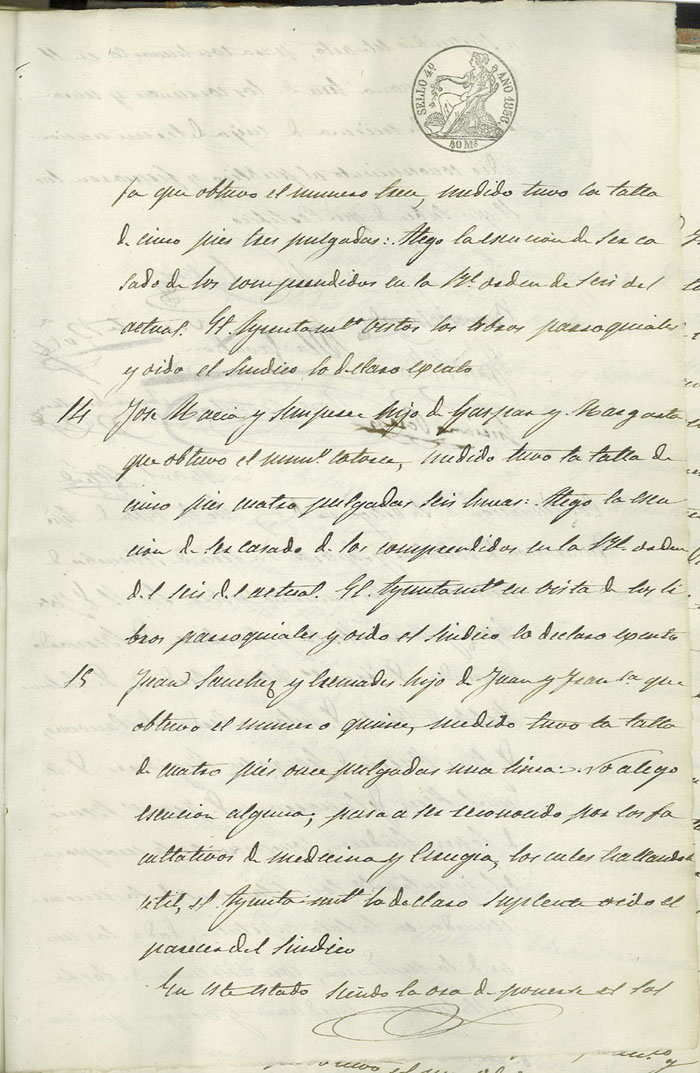 SELLO 4º AÑO 1836.
40 Ms
fa que obtuvo el numero trece, medido tuvo la talla
de cinco pies tres pulgadas: Alego la escucion de ser ca
sado de los comprendidos en la Rl. orden de seis del
actual. El Ayuntamto. vistos los libros parroquiales
y oido el Sindico lo declaro exento
14 Jose Maria y hijo de Gaspar y Margarita
que obtuvo el numo. catorce, medido tuvo la talla de
cinco pies cuatro pulgadas seis lineas: Alego la escu
cion de ser casado de los comprendidos en la Rl. orden
del seis del actual. El Ayuntamto. en vista de los li
bros parroquiales y oido el Sindico lo declaro exento
15 Juan Sanchez y hijo de Juan y Franca. que
obtuvo el numero quince, medido tuvo la talla
de cuatro pies once pulgadas una linea: No alego
escucion alguna; pasa a ser reconocido por los fa
cultativos de medicina y Cirugia, los cuales hallandole
util, el Ayuntamto. lo declaro Suplente oido el
parecer del Sindico
En este estado siendo la ora de ponerse el sol